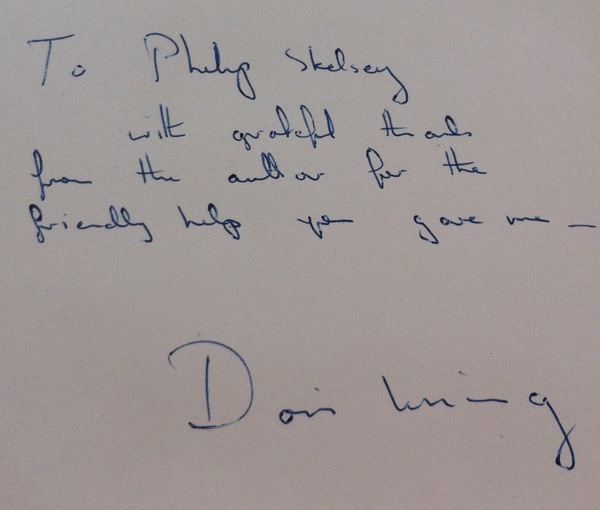 To Philip Skelsey
with grateful thanks
from the author for the
friendly help you gave me —
Doris Lessing